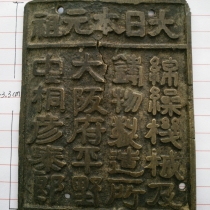 大日本元祖
綿繰機械及
鑄物製造所
大阪府平野
中桐彦泰郎